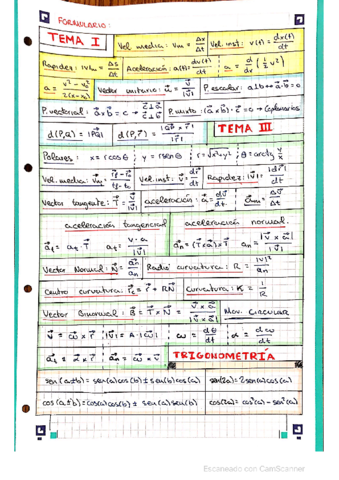 FORMULARIO:
TEMA I
Vel. media: Vm = Δx/Δt
Vel. inst: v(t) = dx(t)/dt
Rapidez: |v|m = Δs/Δt
Aceleración: a(t) = dv(t)/dt
a = d/dx (1/2 v²)
a = v² - v₀²/2(x-x₀)
Vector unitario: û = v⃗/|v⃗|
P. escalar: a⊥b ↔ a⃗·b⃗ = 0
P. vectorial: a⃗ × b⃗ = c → c⃗⊥a⃗ c⃗⊥b⃗
P. mixto: (a⃗×b⃗)·c⃗ = 0 → Coplanarios
d(P,Q) = |PQ|
d(P,r⃗) = |QP × r⃗|/|r⃗|
TEMA III
Polares: x = r cos θ
y = r sen θ
r = √x²+y²
θ = arctg y/x
Vel. media:
Vel. inst: v⃗ = dr⃗/dt
Rapidez: |v⃗| = |dr⃗|/dt
Vector tangente: T⃗ = v⃗/|v⃗|
aceleración: a⃗ = dv⃗/dt
a⃗m = Δv⃗/Δt
aceleración tangencial
aceleración normal
a⃗t = at·T⃗
at = v·a/|v⃗|
a⃗n = (T⃗×a⃗)×T⃗
an = |v⃗ × a⃗|/|v⃗|
Vector Normal: N⃗ = a⃗n/an
Radio curvatura: R = |v|²/an
Centro curvatura: r⃗c = r⃗ + RN⃗
Curvatura: K = 1/R
Vector Binormal: B⃗ = T⃗ × N⃗ = v⃗ × a⃗/|v⃗ × a⃗|
Mov. CIRCULAR
v⃗ = ω⃗ × r⃗
ω = dθ/dt
α = dω/dt
a⃗n = ω⃗ × v⃗
TRIGONOMETRÍA
sen(a±b) = sen(a)cos(b) ± sen(b)cos(a)
sen(2a) = 2sen(a)cos(a)
cos(a±b) = cos(a)cos(b) ± sen(a)sen(b)
cos(2a) = cos²(a) - sen²(a)
Escaneado con CamScanner